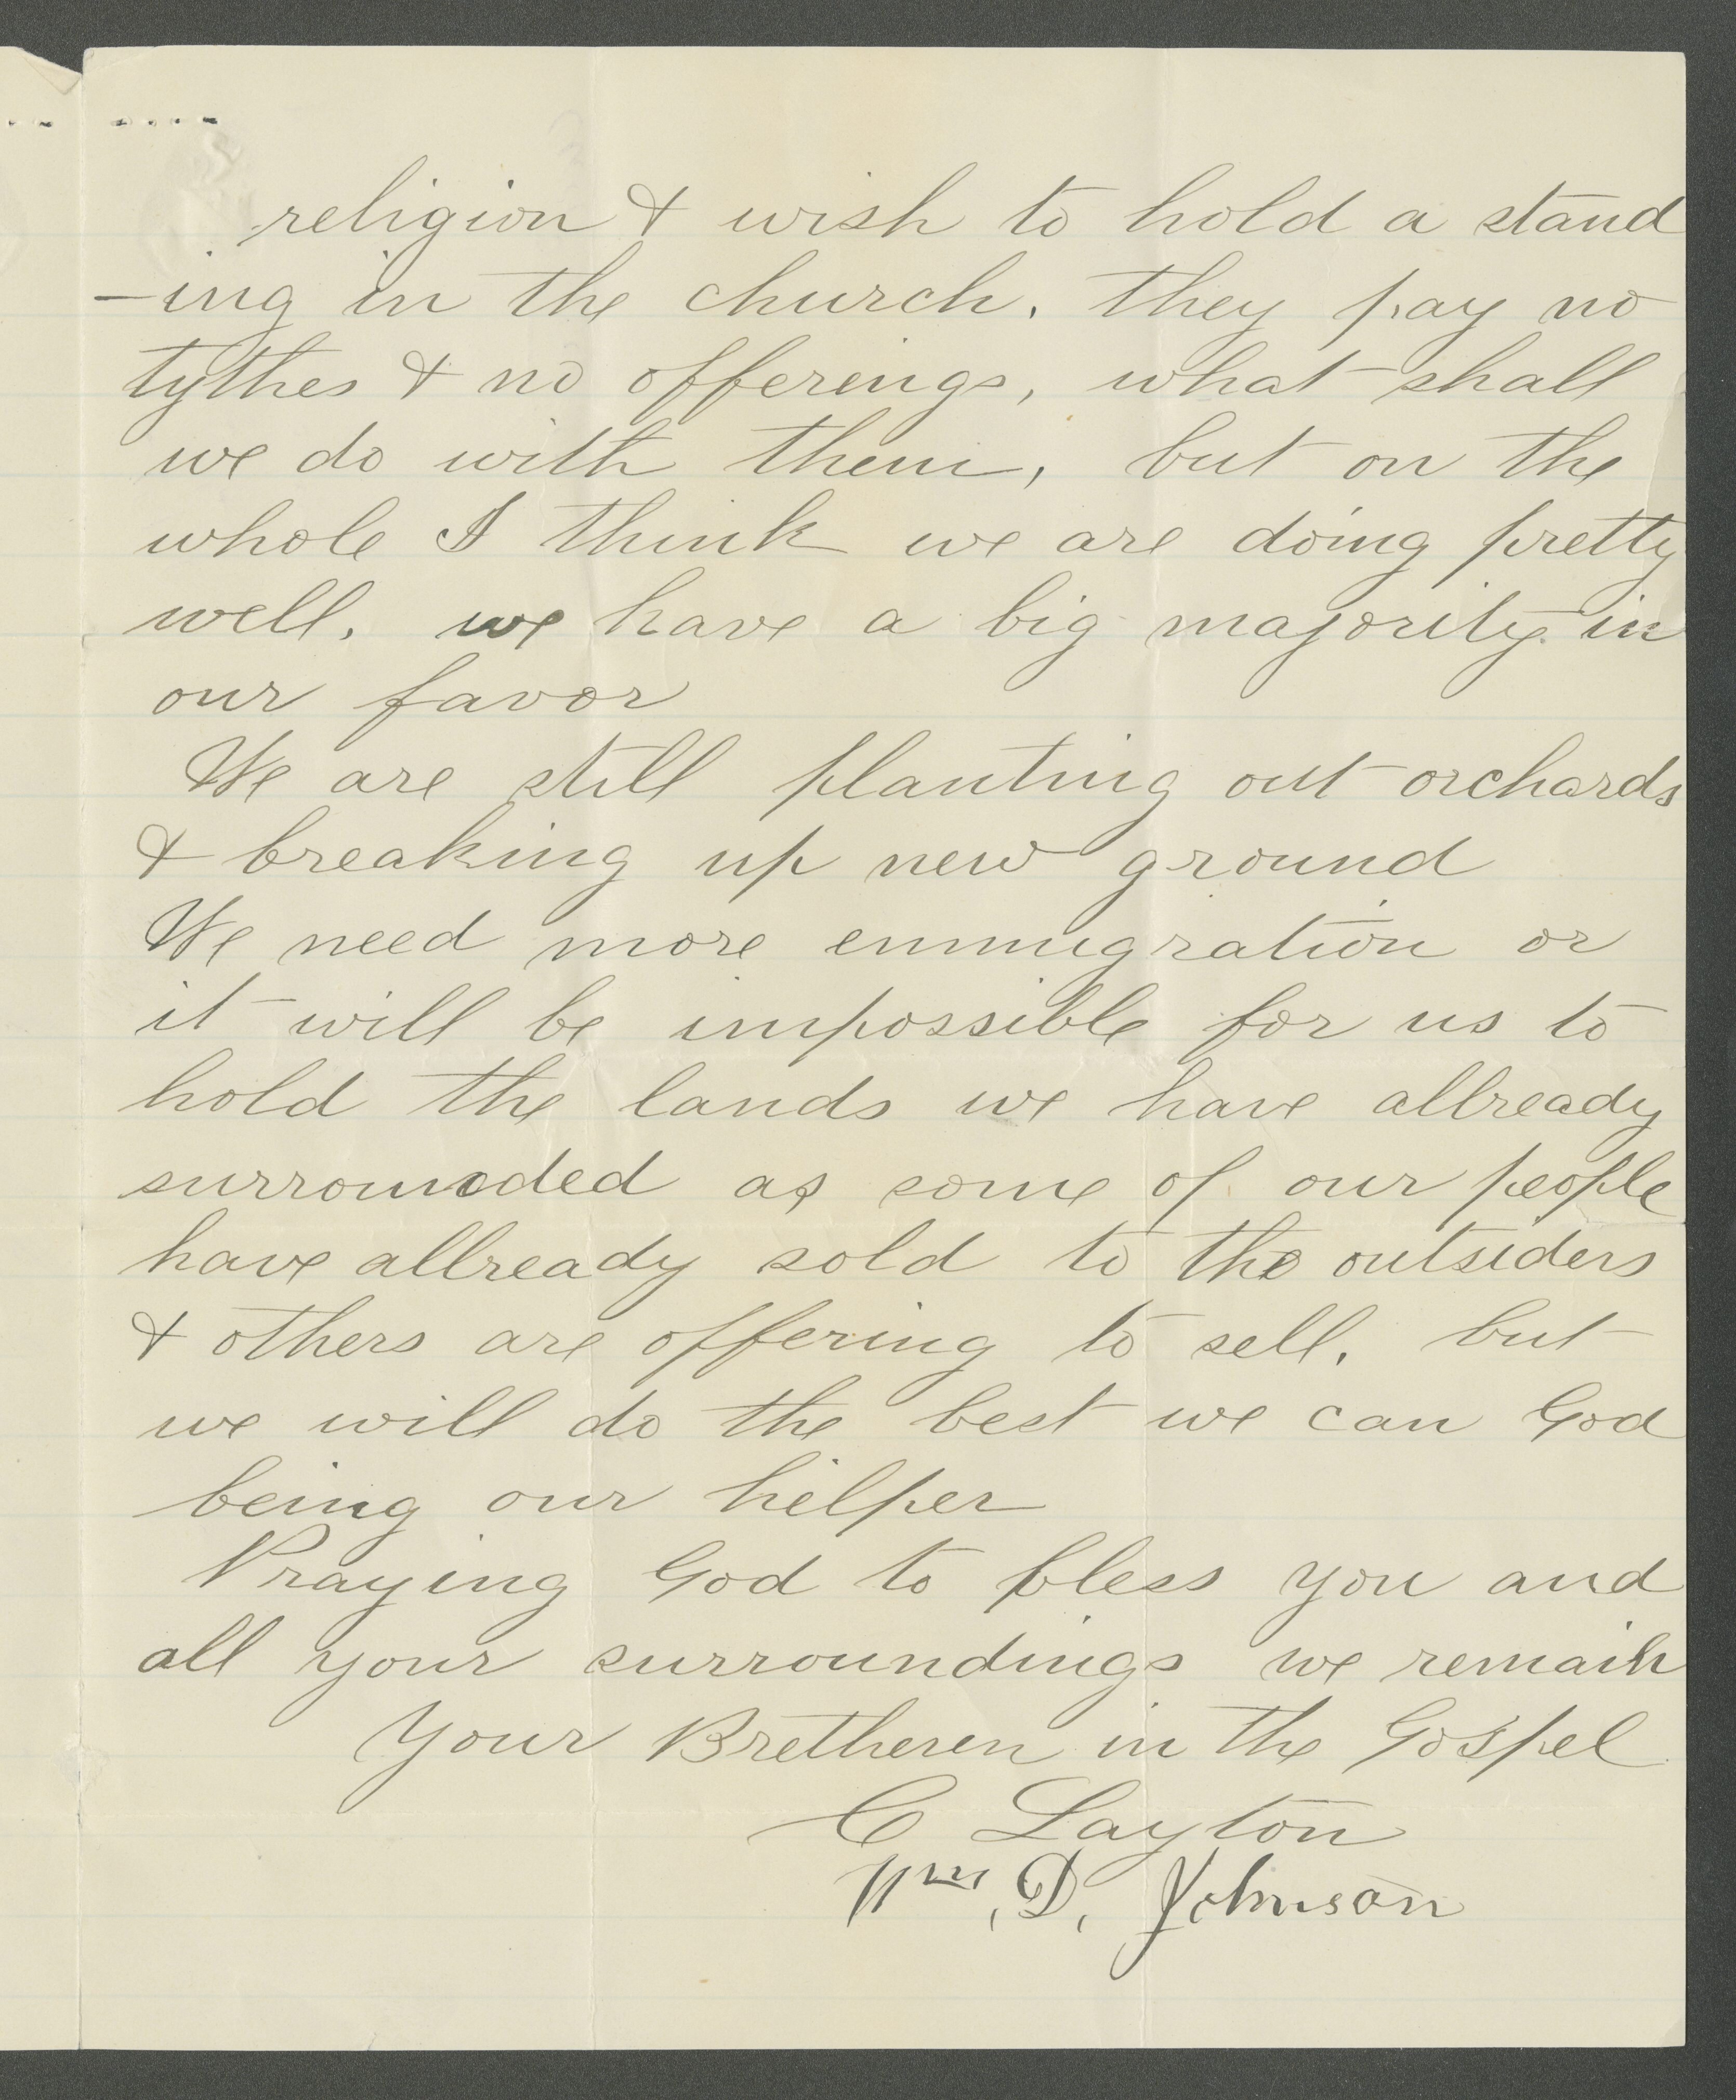 religion & wish to hold a stand
-ing in the church. they pay no
tythes & no offerings, what shall
we do with them, but on the
whole I think we are doing pretty
well. we have a big majority in
our favor
We are still planting out orchards
& breaking up new ground
We need more emmigration or
it will be impossible for us to
hold the lands we have allready
surrounded as some of our people
have allready sold to the outsiders
& others are offering to sell. but
we will do the best we can God
being our helper
Praying God to bless you and
all your surroundings we remain
Your Bretheren in the Gospel
C Layton
Wm. D. Johnson